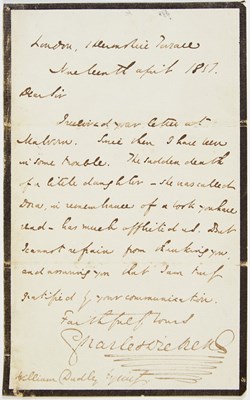 London, Devonshire Terrace
Nineteenth April 1851.
Dear Sir
I received your letter at
Malvern. Since then I have been
in some trouble. The sudden death
of a little daughter - she was called
Dora, in remembrance of a book you have
read - has much afflicted us. But
I cannot refrain from thanking you,
and assuring you that I am truly
gratified by your communication.
Faithfully Yours
Charles Dickens
William Dudley